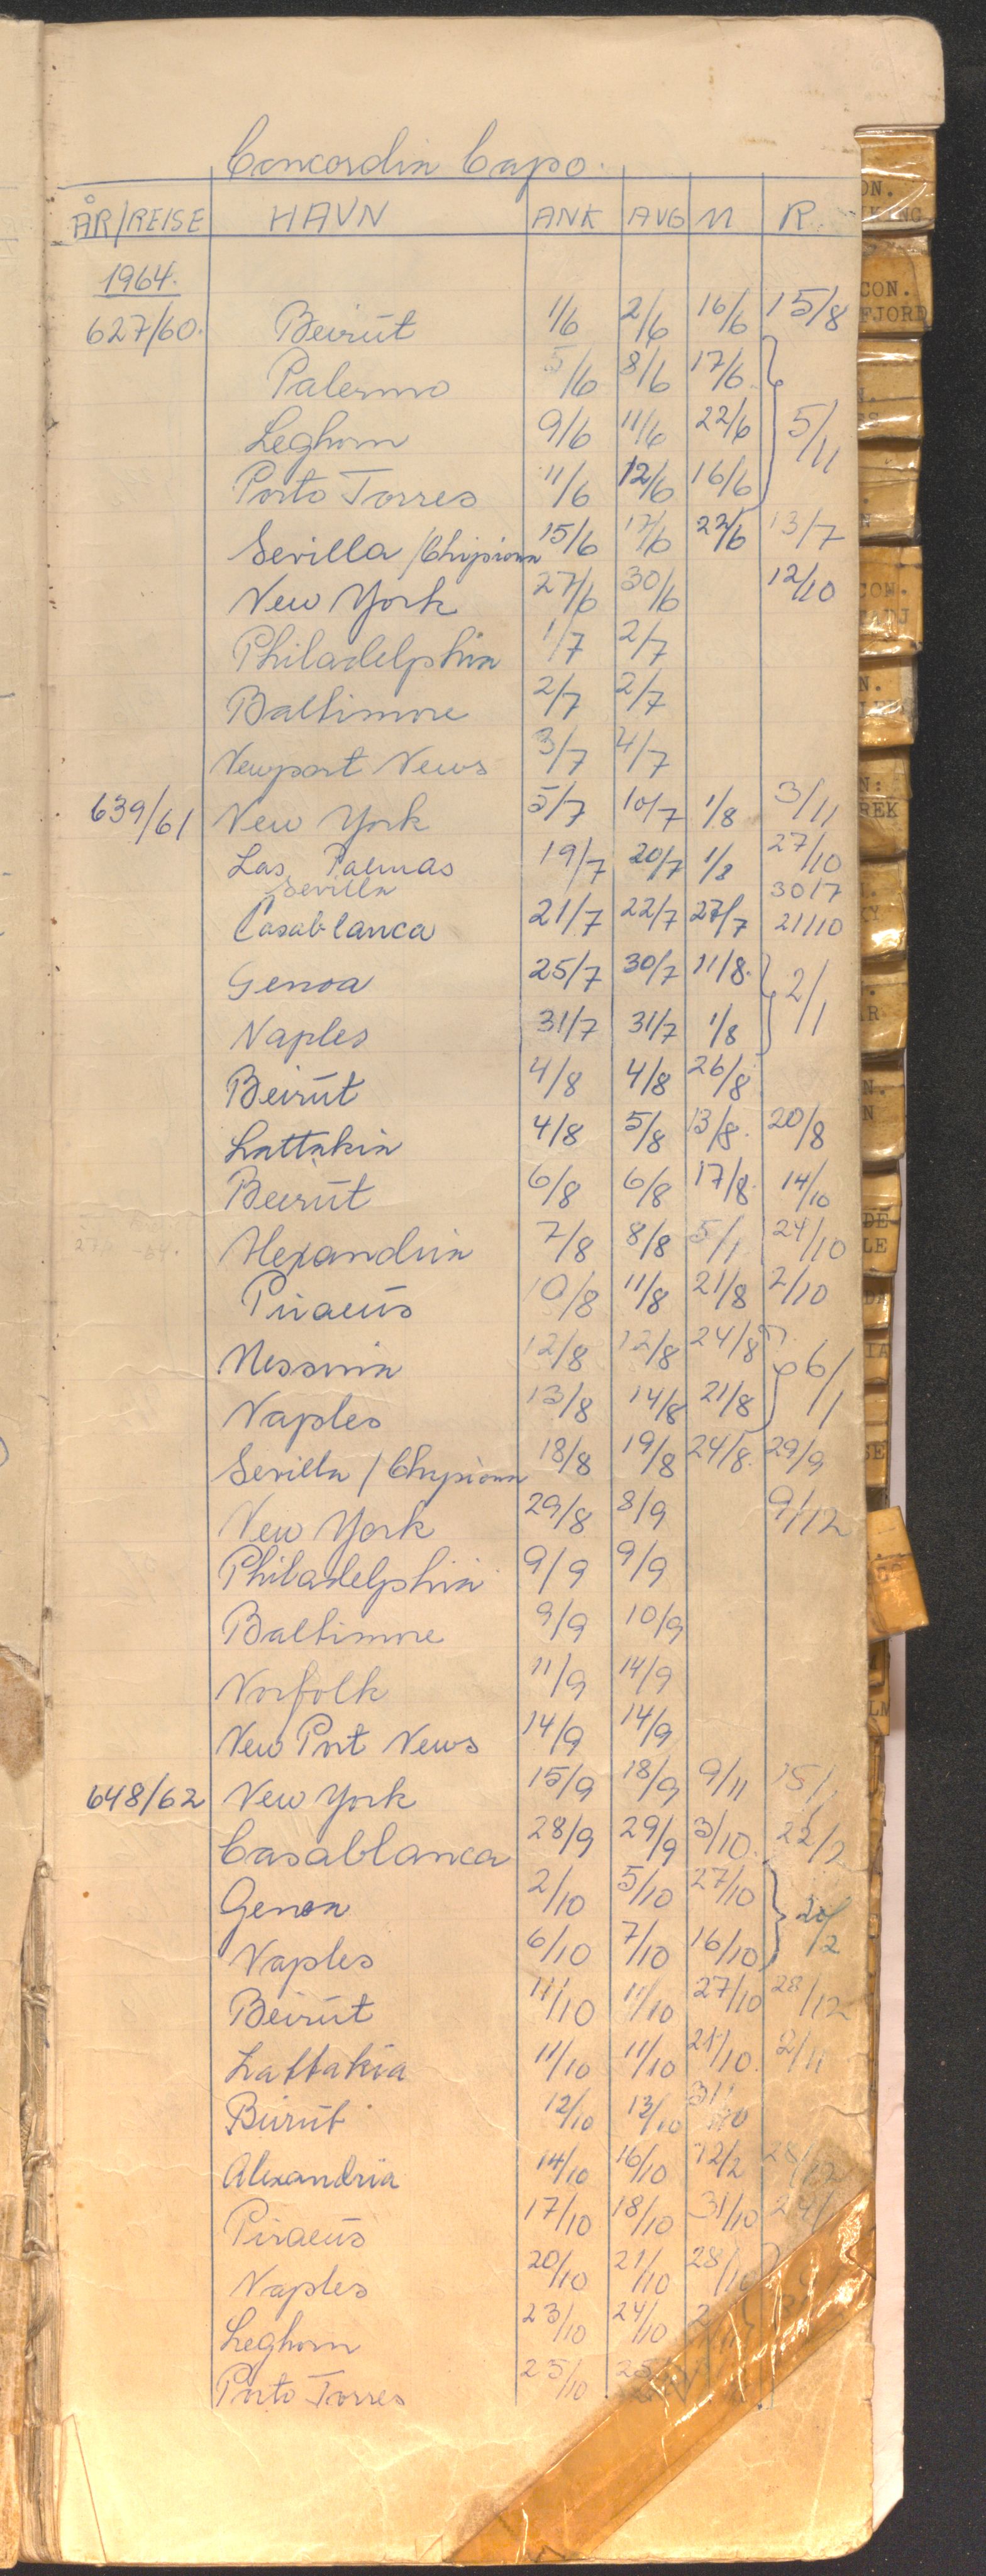 Concordia Capo.
ÅR/REISE HAVN ANK AVG M R.
1964.
627/60. Beirut 1/6 2/6 16/6 15/8
Palermo 5/6 8/6 17/6
Leghorn 9/6 11/6 22/6 5/11
Porto Torres 11/6 12/6 16/6
Sevilla /Chipiona 15/6 17/6 22/6 13/7
New York 27/6 30/6 12/10
Philadelphia 1/7 2/7
Baltimore 2/7 2/7
Newport News 3/7 4/7
639/61 New York 5/7 10/7 1/8 3/11
Las Palmas 19/7 20/7 1/8 27/10
Sevilla 30/7
Casablanca 21/7 22/7 27/7 21/10
Genoa 25/7 30/7 11/8. 2/1
Naples 31/7 31/7 1/8
Beirut 4/8 4/8 26/8
Lattakia 4/8 5/8 13/8. 20/8
Beirut 6/8 6/8 17/8. 14/10
Alexandria 7/8 8/8 5/1 24/10
Piraeus 10/8 11/8 21/8 2/10
Messina 12/8 12/8 24/8 6/1
Naples 13/8 14/8 21/8
Sevilla / Chipiona 18/8 19/8 24/8. 29/9
New York 29/8 8/9 9/12
Philadelphia 9/9 9/9
Baltimore 9/9 10/9
Norfolk 11/9 14/9
New Port News 14/9 14/9
648/62 New York 15/9 18/9 9/11
Casablanca 28/9 29/9 3/10. 22/2
Genoa 2/10 5/10 27/10 20/2
Naples 6/10 7/10 16/10
Beirut 11/10 11/10 27/10 28/12
Lattakia 11/10 11/10 21/10. 2/11
Beirut 12/10 13/10
Alexandria 14/10 16/10 12/2
Piraeus 17/10 18/10 31/10
Naples 20/10 21/10 28/10
Leghorn 23/10 24/10
Porto Torres 25/10
CON.
FJORD
CON.